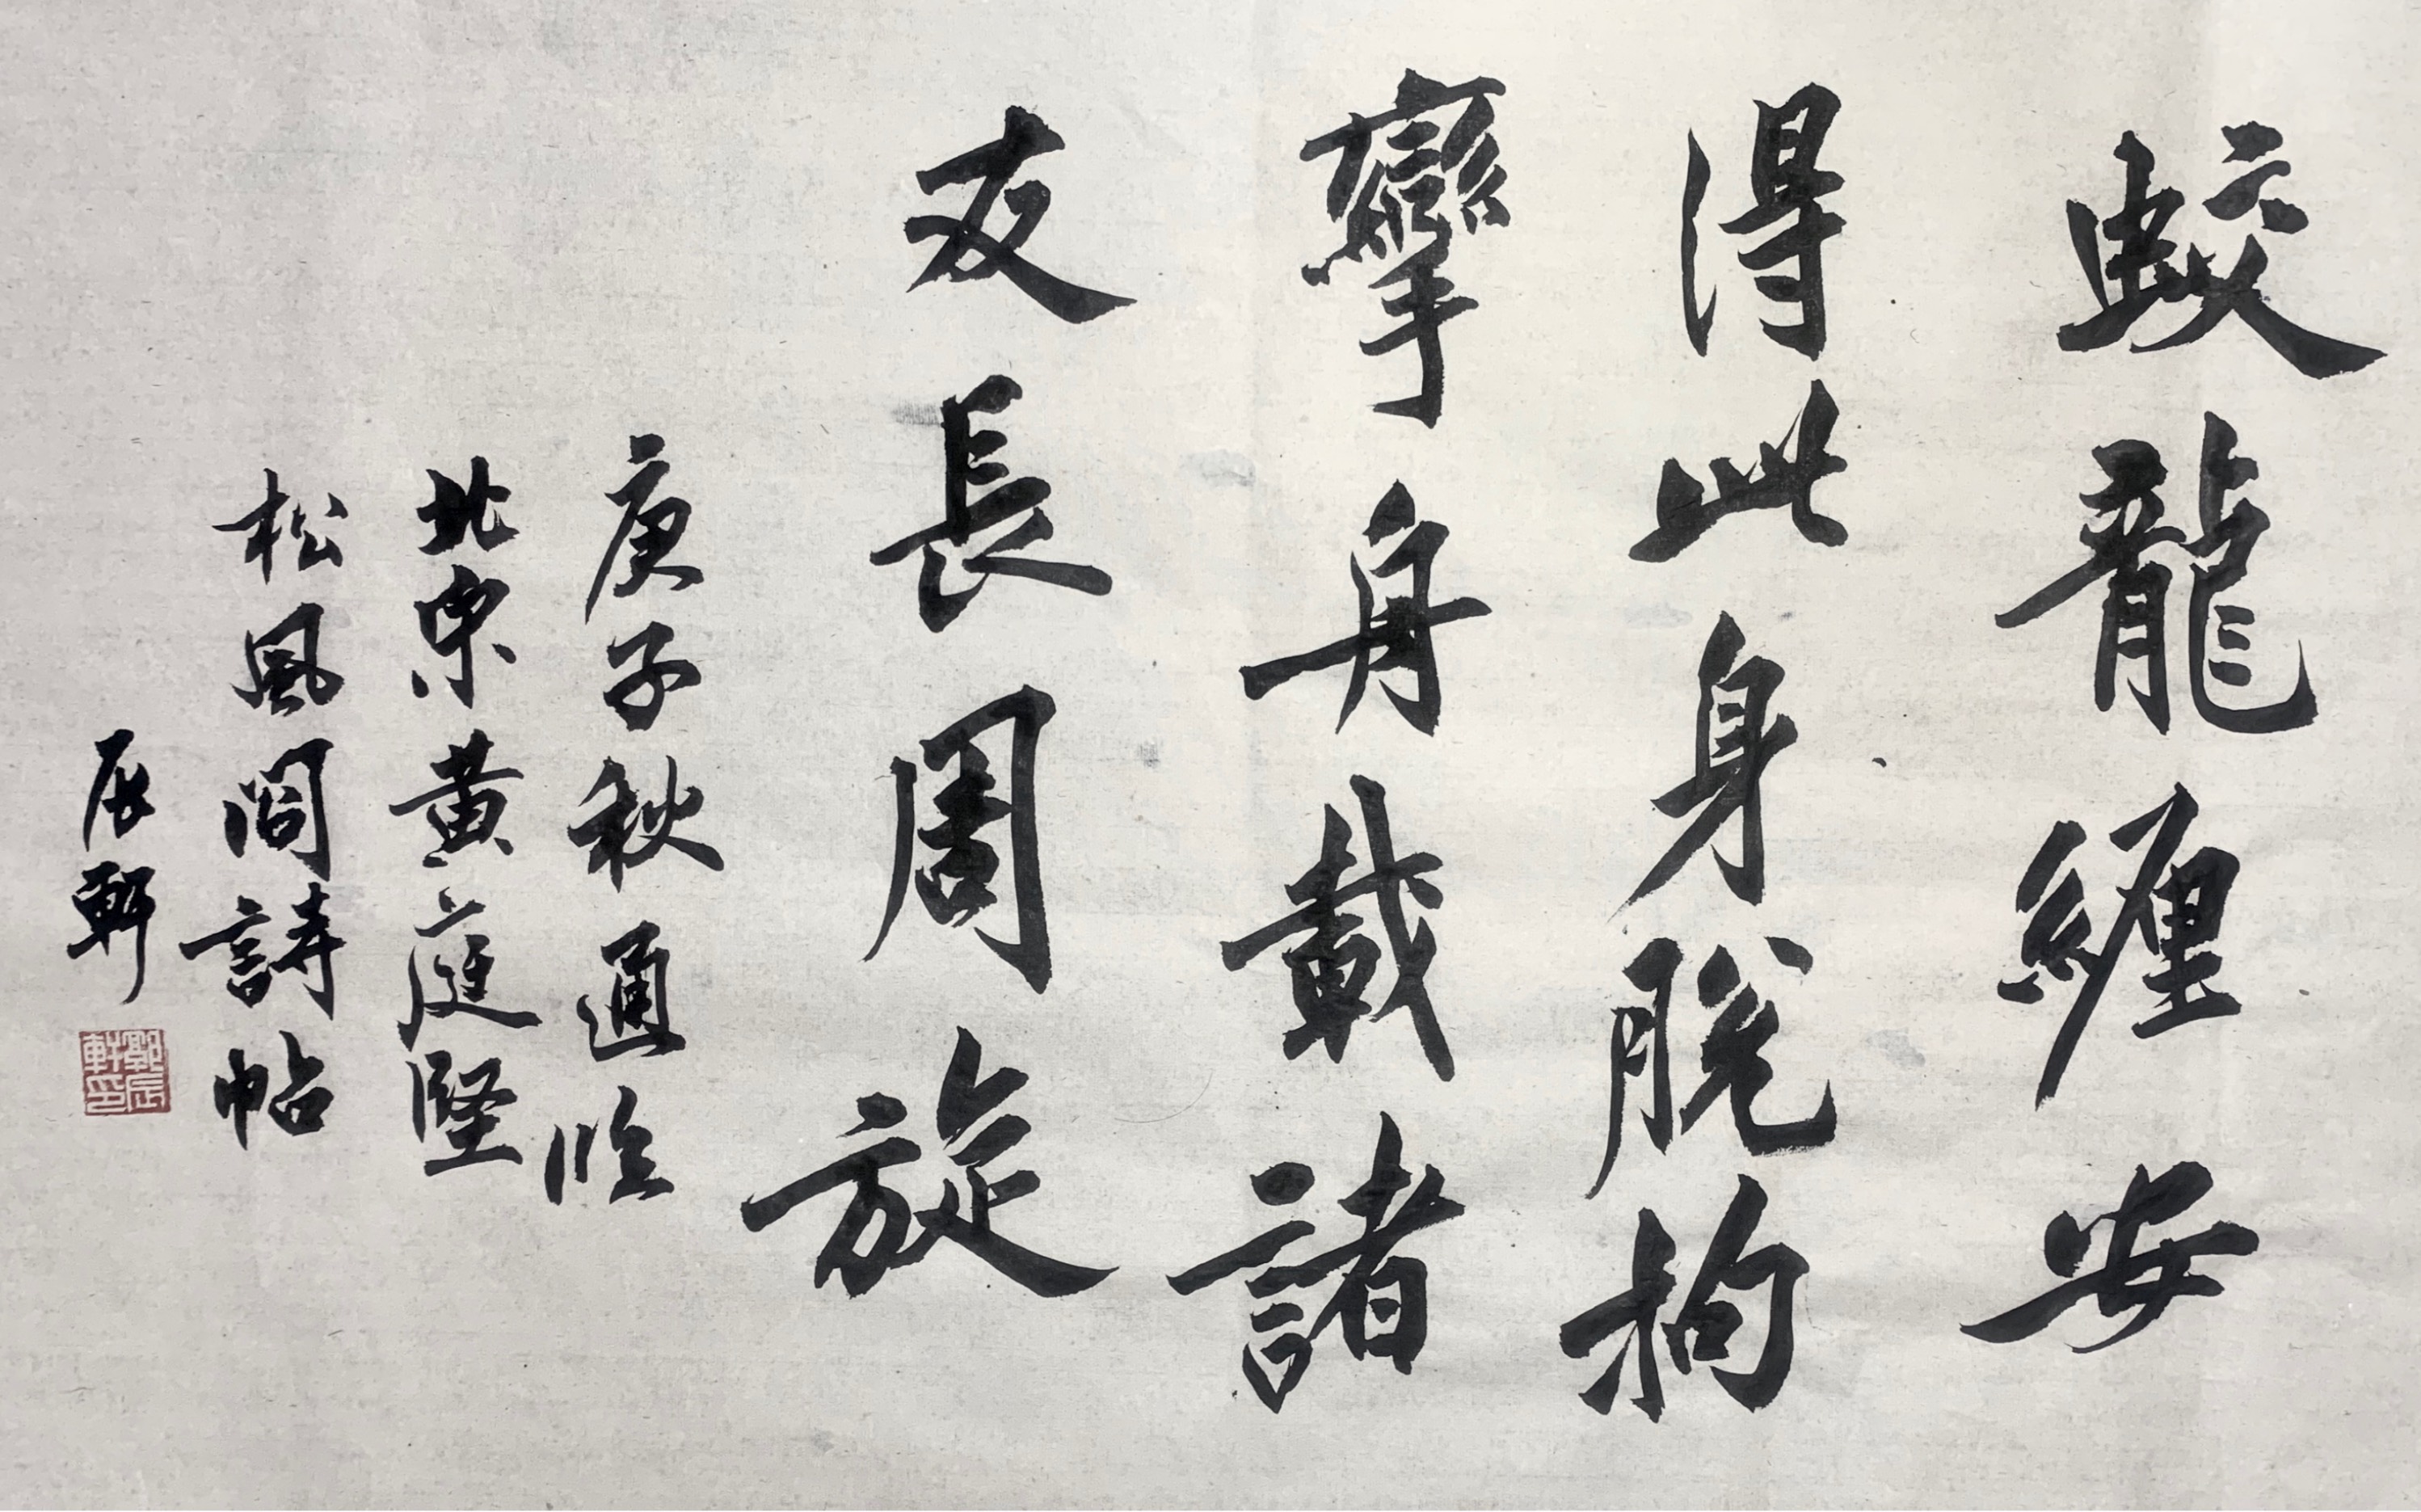 蛟龍纏安
得此身脫拘
攣舟載諸
友長周旋
庚子秋通臨
北宋黃庭堅
松風閣詩帖
辰軒
鄭辰軒印